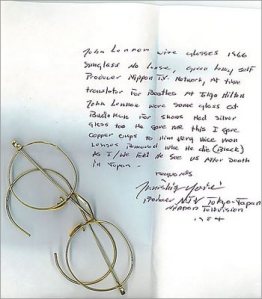 John Lennon wire glasses 1966
sunglass No Lense, given to my self
Producer Nippon T.V. Network, At time
translator For Beatles At Tokyo Hilton
John Lennon wore some glass at
Budokan For shows Had silver
glass too He gave me this I gave
copper cups to Him very nice man
Lenses Removed when He die (Black)
As I / We Feel He See us After Death
in Japan -
regards
Producer NTV Tokyo-Japan
Nippon Television
1984